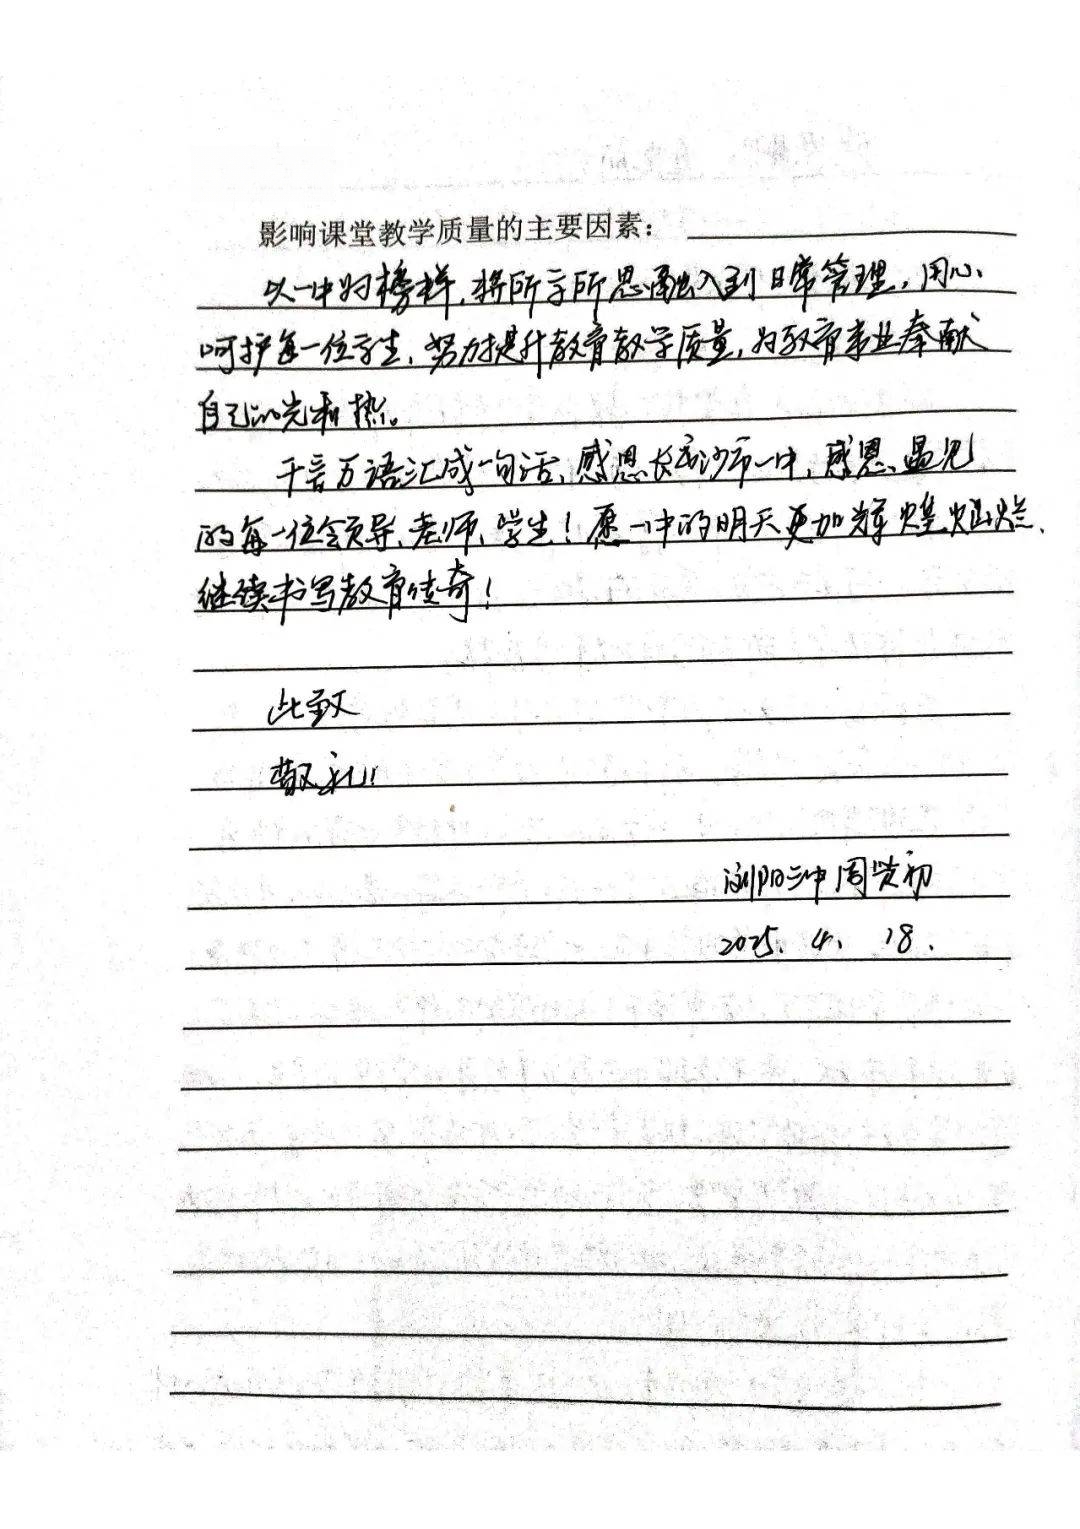 影响课堂教学质量的主要因素：
以一中为榜样，将所学所思融入到日常管理，用心
呵护每一位学生，努力提升教育教学质量，为教育事业奉献
自己的光和热。
千言万语汇成一句话，感恩长沙市一中，感恩遇见
的每一位领导、老师、学生！愿一中的明天更加辉煌灿烂，
继续书写教育传奇！
此致
敬礼！
浏阳三中 周贤初
2025. 4. 18.